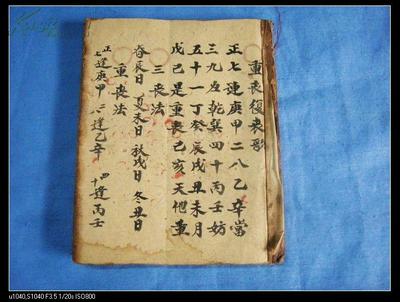 重丧復丧歌
正七連庚甲二八乙辛當
三九乾巽四十丙壬妨
五十一丁癸辰戌丑未月
戊己是重丧己亥天重
三丧法
春辰日 夏未日 秋戌日 冬丑日
重丧法
正七逢庚甲 二八逢乙辛 四十逢丙壬
u1040,S1040 F3.5 1/20s ISO800